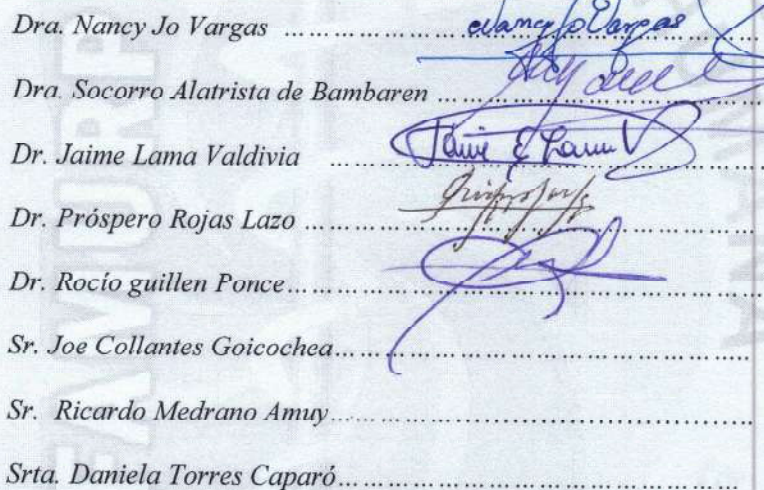 Dra. Nancy Jo Vargas ........................ Nancy Jo Vargas
Dra. Socorro Alatrista de Bambaren ........................
Dr. Jaime Lama Valdivia ........................ Jaime E Lama V
Dr. Próspero Rojas Lazo ........................
Dr. Rocío guillen Ponce........................
Sr. Joe Collantes Goicochea........................
Sr. Ricardo Medrano Amuy........................
Srta. Daniela Torres Caparó........................